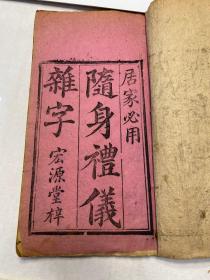 居家必用
隨身禮儀
雜字
宏源堂梓